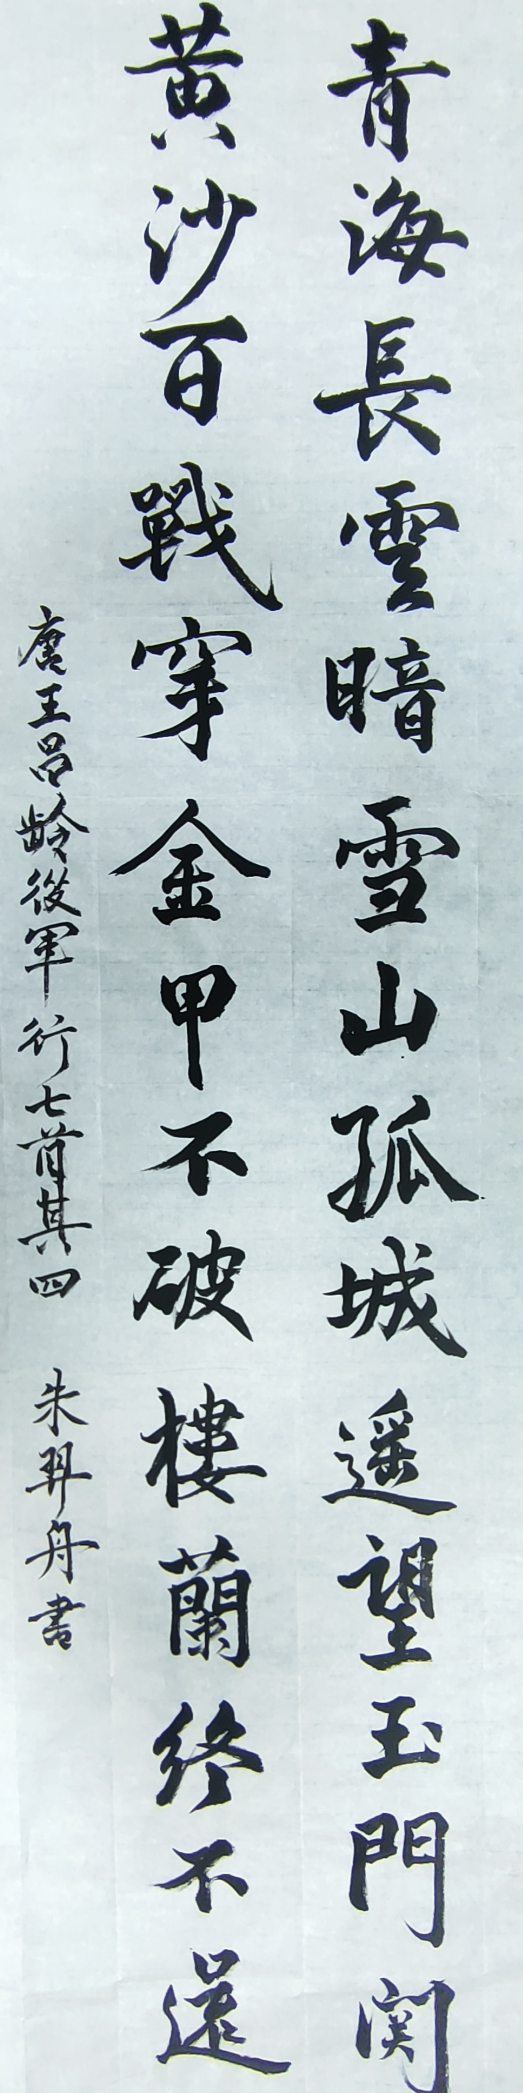 青海長雲暗雪山孤城遥望玉門関
黄沙百戰穿金甲不破樓蘭終不還
唐王昌齡從軍行七首其四 朱羿舟書